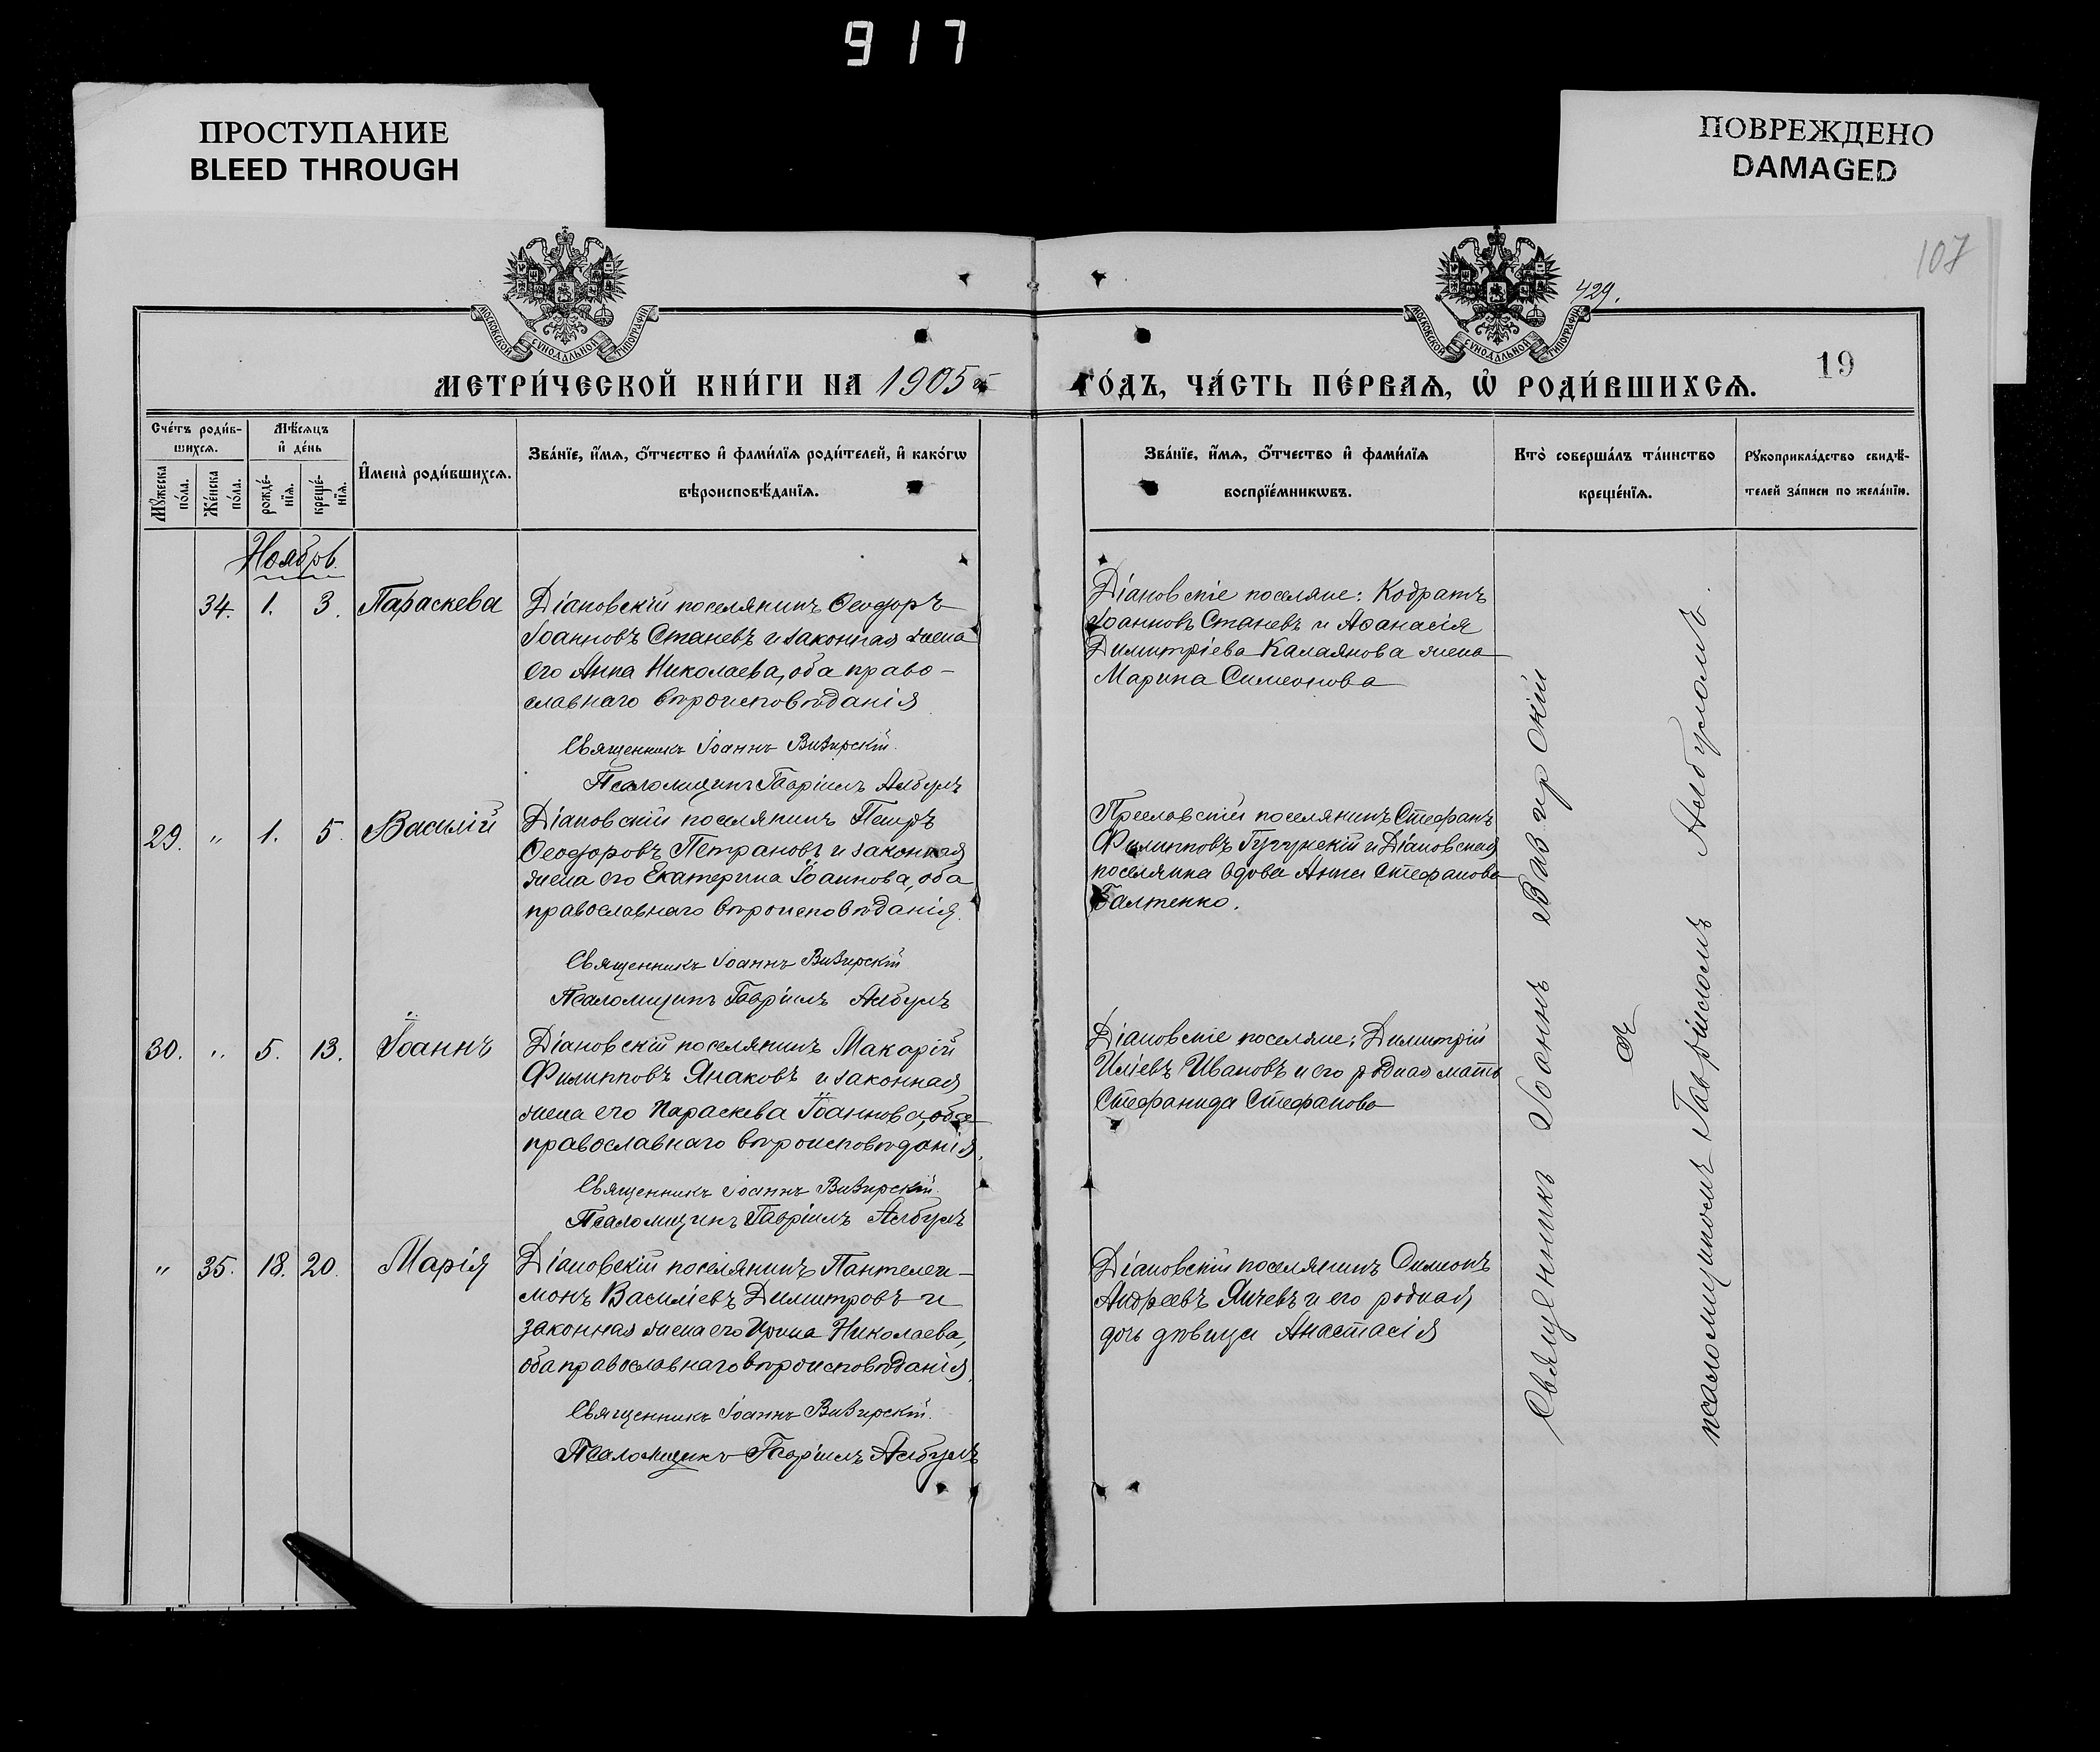 917
ПРОСТУПАНИЕ
BLEED THROUGH
ПОВРЕЖДЕНО
DAMAGED
107
429.
МОСКОВСКОЙ СѴНОДАЛЬНОЙ ТИПОГРАФІИ
МОСКОВСКОЙ СѴНОДАЛЬНОЙ ТИПОГРАФІИ
19
МЕТРИ́ЧЕСКОЙ КНИ́ГИ НА 1905 й ГО́ДЪ, ЧА́СТЬ ПЕ́РВАѦ, Ѽ РОДИ́ВШИХСѦ.
Сче́тъ роди́в-
шихсѧ.
Мꙋ́жеска по́ла.
Же́нска по́ла.
Мѣ́сѧцъ
и҆ де́нь
рожде́-нїѧ.
креще́-нїѧ.
И҆мена̀ роди́вшихсѧ.
Зва́нїе, и҆́мѧ, ѻ҆́тчество и҆ фами́лїѧ роди́телей, и҆ како́гѡ
вѣроисповѣ́данїѧ.
Зва́нїе, и҆́мѧ, ѻ҆́тчество и҆ фами́лїѧ
воспрїе́мникѡвъ.
Кто̀ соверша́лъ та́инство
креще́нїѧ.
Рꙋкоприкла́дство свидѣ́-
телей за́писи по жела́нїю.
Ноябрь.
34. 1. 3. Параскева
Діановскій поселянинъ Ѳеодоръ
Іоанновъ Станевъ и законная жена
его Анна Николаева, оба право-
славнаго вѣроисповѣданія
Священникъ Іоаннъ Визирскій.
Псаломщикъ Гавріилъ Албулъ
Діановскіе поселяне: Кодратъ
Іоанновъ Станевъ и Аѳанасія
Димитріева Калаянова жена
Марина Симеонова
29. " 1. 5. Василій
Діановскій поселянинъ Петръ
Ѳеодоровъ Петрановъ и законная
жена его Екатерина Іоаннова, оба
православнаго вѣроисповѣданія.
Священникъ Іоаннъ Визирскій
Псаломщикъ Гавріилъ Албулъ
поселянинъ Стефанъ
Филипповъ и Діановская
поселянка вдова Анна Стефанова
Балтенко.
30. " 5. 13. Іоаннъ
Діановскій поселянинъ Макарій
Филипповъ Янаковъ и законная
жена его Параскева Іоаннова, оба
православнаго вѣроисповѣданія.
Священникъ Іоаннъ Визирскій
Псаломщикъ Гавріилъ Албулъ
Діановскіе поселяне: Димитрій
Иліевъ Ивановъ и его родная мать
Стефанида Стефанова
" 35. 18. 20. Марія
Діановскій поселянинъ Пантелеи-
монъ Василіевъ Димитровъ и
законная жена его Ирина Николаева,
оба православнаго вѣроисповѣданія.
Священникъ Іоаннъ Визирскій.
Псаломщикъ Гавріилъ Албулъ
Діановскій поселянинъ Симеонъ
Андреевъ Янчевъ и его родная
дочь дѣвица Анастасія
Священникъ Іоаннъ Визирскій
съ
псаломщикомъ Гавріиломъ Албуломъ.